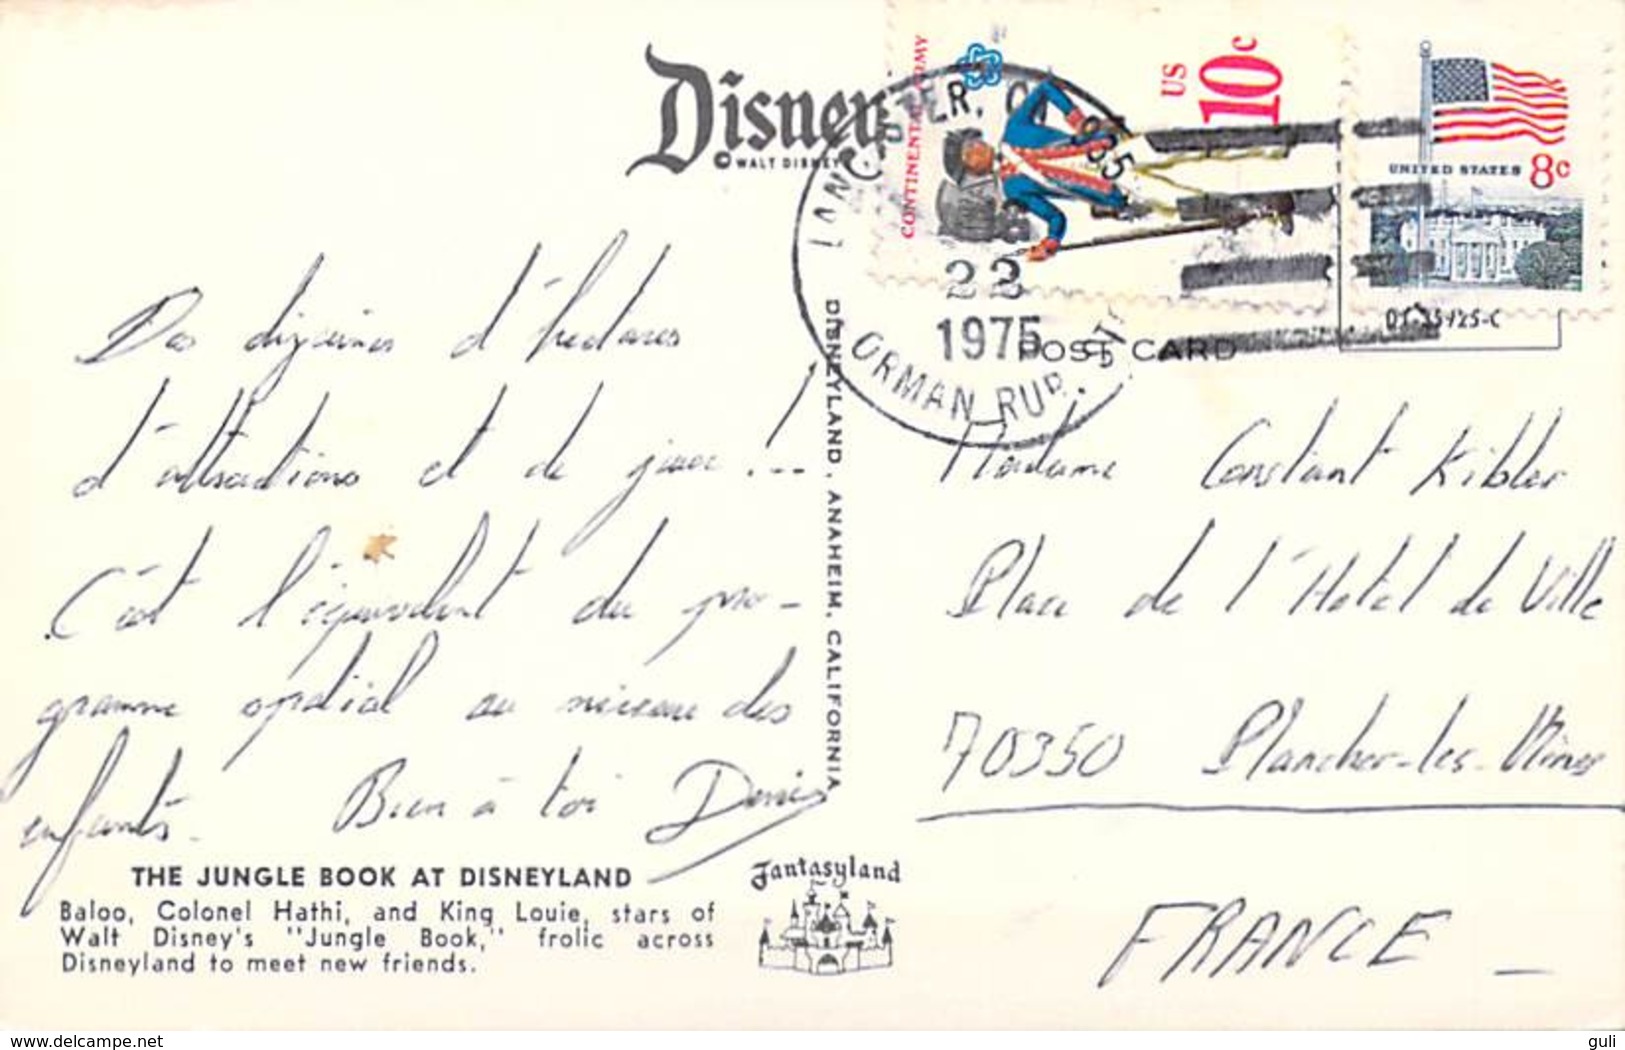 Disney
© WALT DISNEY
CONTINENTAL ARMY
US
10c
UNITED STATES 8c
LANCASTER, CA 935
22
1975
GORMAN RUR. STA
POST CARD
01-35125-C
Des dizaines d'hectares
d'attractions et de jeux !...
C'est l'équivalent du pro-
gramme spatial au niveau des
enfants. Bien à toi Denis
DISNEYLAND, ANAHEIM, CALIFORNIA
Madame Constant Kibler
Place de l'Hotel de Ville
70350 Plancher-les-Mines
FRANCE
THE JUNGLE BOOK AT DISNEYLAND
Baloo, Colonel Hathi, and King Louie, stars of
Walt Disney's "Jungle Book," frolic across
Disneyland to meet new friends.
Fantasyland
www.delcampe.net
guli